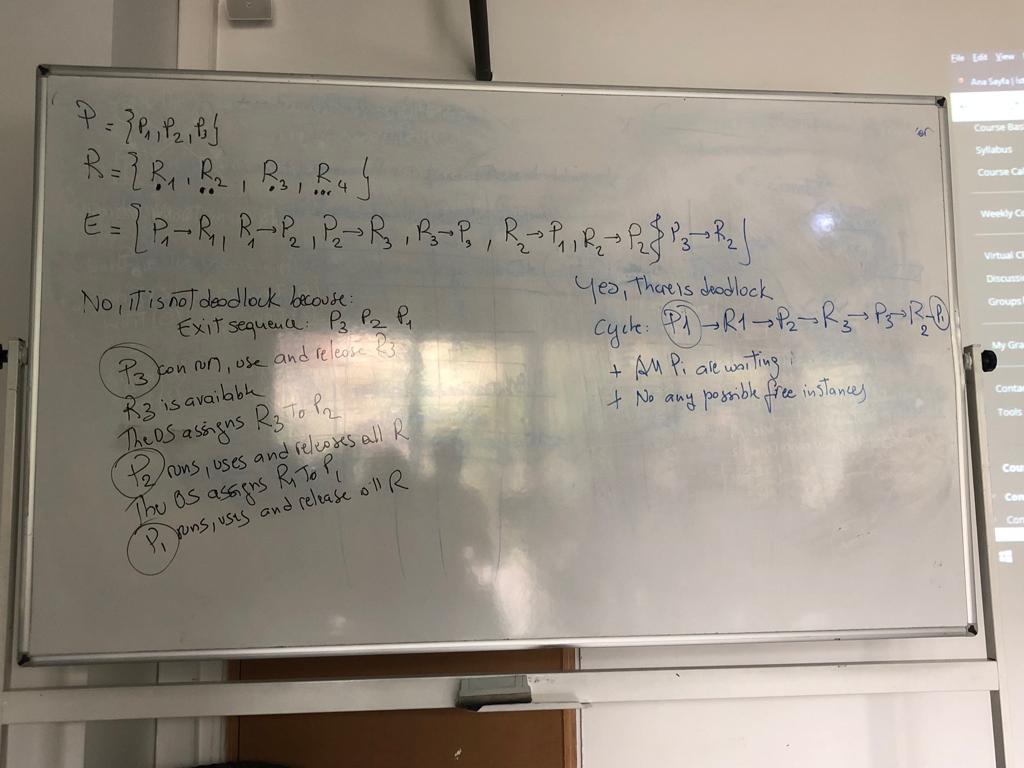 P = {P1, P2, P3}
R = {R1, R2, R3, R4}
E = {P1→R1, R1→P2, P2→R3, R3→P3, R2→P1, R2→P2} P3→R2}
No, it is not deadlock because:
Exit sequence: P3 P2 P1
P3 can run, use and release R3
R3 is available
The OS assigns R3 To P2
P2 runs, uses and releases all R
The OS assigns R1 To P1
P1 runs, uses and release all R
Yes, There is deadlock
Cycle: P1→R1→P2→R3→P3→R2-P1
+ All Pi are waiting
+ No any possible free instances
File Edit View
Ana Sayfa
Course Bas
Syllabus
Course Cal
Weekly Co
Virtual Cl
Discussi
Groups
My Gra
Contac
Tools
Cou
Con
Con